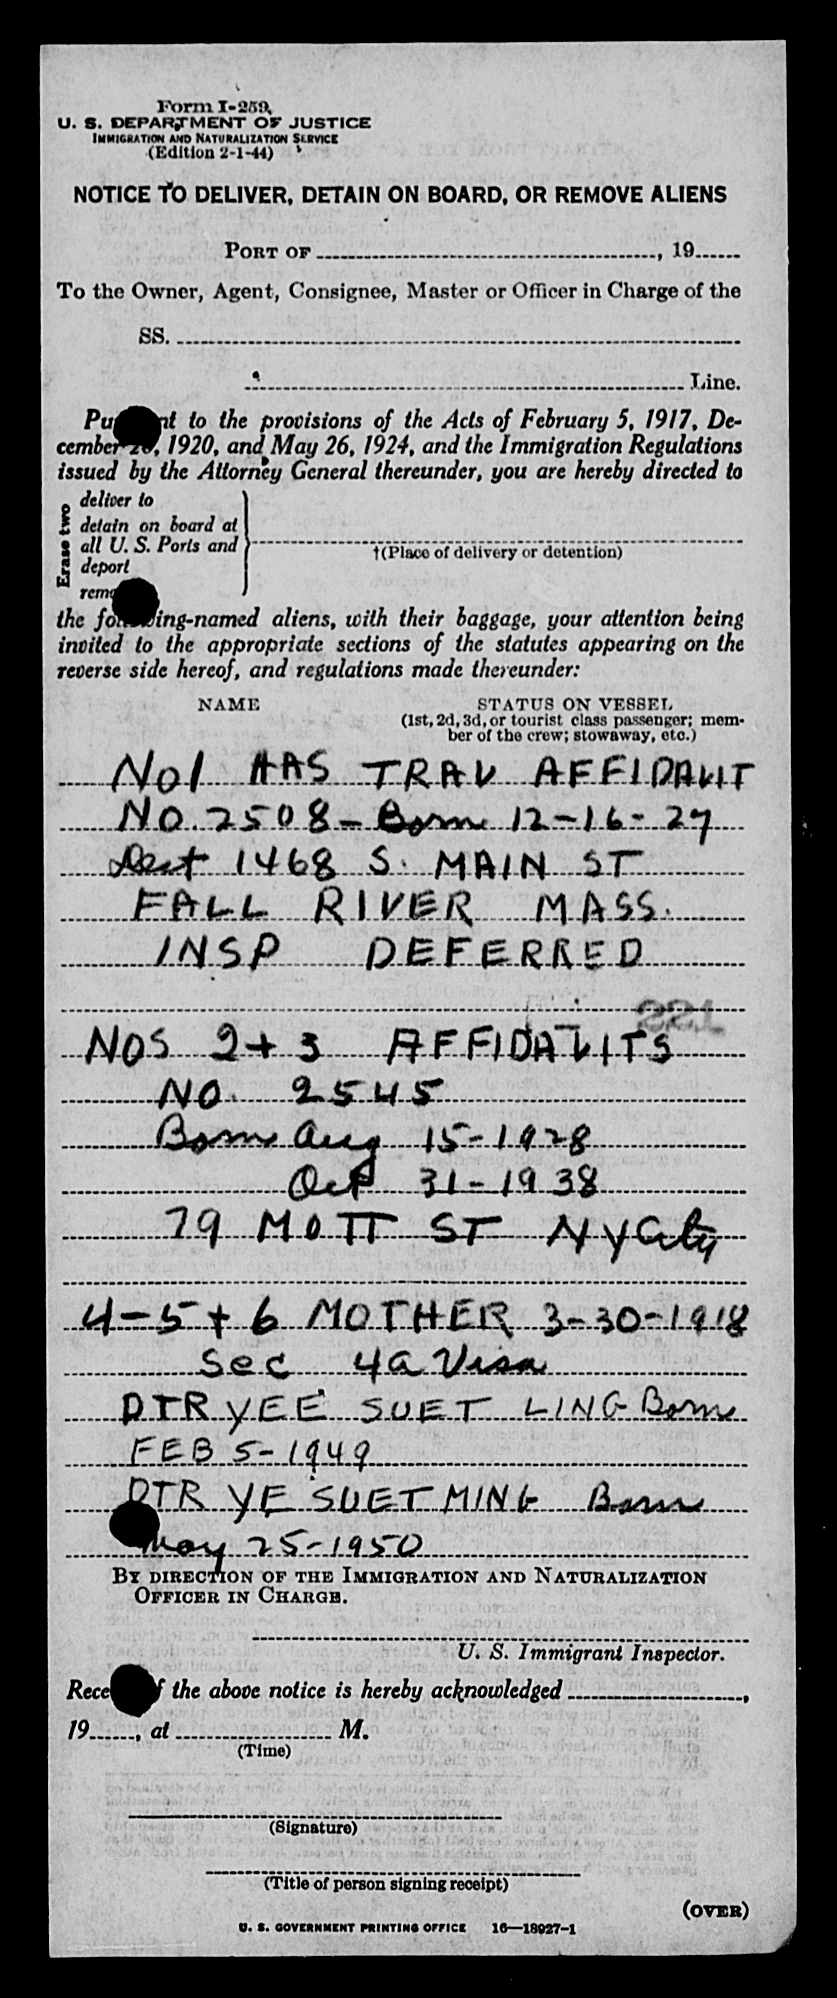 Form I-259
U. S. DEPARTMENT OF JUSTICE
IMMIGRATION AND NATURALIZATION SERVICE
(Edition 2-1-44)
NOTICE TO DELIVER, DETAIN ON BOARD, OR REMOVE ALIENS
PORT OF ........................................, 19......
To the Owner, Agent, Consignee, Master or Officer in Charge of the
SS. ........................................
........................................ Line.
Pu nt to the provisions of the Acts of February 5, 1917, De-
cember 26, 1920, and May 26, 1924, and the Immigration Regulations
issued by the Attorney General thereunder, you are hereby directed to
Erase two
deliver to
detain on board at
all U. S. Ports and
deport
remo
†(Place of delivery or detention)
the following-named aliens, with their baggage, your attention being
invited to the appropriate sections of the statutes appearing on the
reverse side hereof, and regulations made thereunder:
NAME STATUS ON VESSEL
(1st, 2d, 3d, or tourist class passenger; mem-
ber of the crew; stowaway, etc.)
No1 HAS TRAV AFFIDAVIT
NO. 2508 - Born 12-16-27
Dest 1468 S. MAIN ST
FALL RIVER MASS.
INSP DEFERRED
221
NOS 2+3 AFFIDAVITS
NO. 2545
Born Aug 15-1928
Oct 31-1938
79 MOTT ST N Y City
4-5+6 MOTHER 3-30-1918
Sec 4a Visa
DTR YEE SUET LING Born
FEB 5-1949
DTR YE SUET MING Born
May 25-1950
BY DIRECTION OF THE IMMIGRATION AND NATURALIZATION
OFFICER IN CHARGE.
U. S. Immigrant Inspector.
Rece f the above notice is hereby acknowledged ........................,
19......, at .................... M.
(Time)
(Signature)
(Title of person signing receipt)
(OVER)
U. S. GOVERNMENT PRINTING OFFICE 16—18927-1